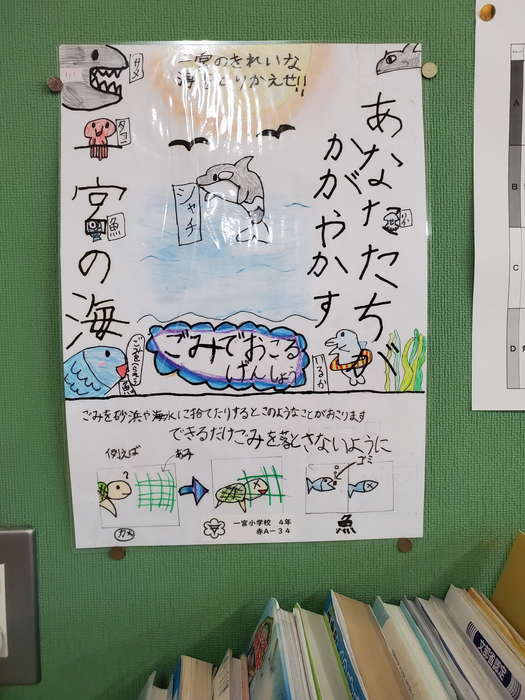 一宮のきれいな
海をとりかえせ!!
サメ
タコ
シャチ
あなたたちが
かがやかす
宮の海
魚
ごみでおこる
げんしょう
いるか
ごみを砂浜や海水に捨てたりするとこのようなことがおこります
できるだけごみを落とさないように
例えば
あみ
ゴミ
?
カメ
魚
一宮小学校 4年
赤A-34
A
B
C
D